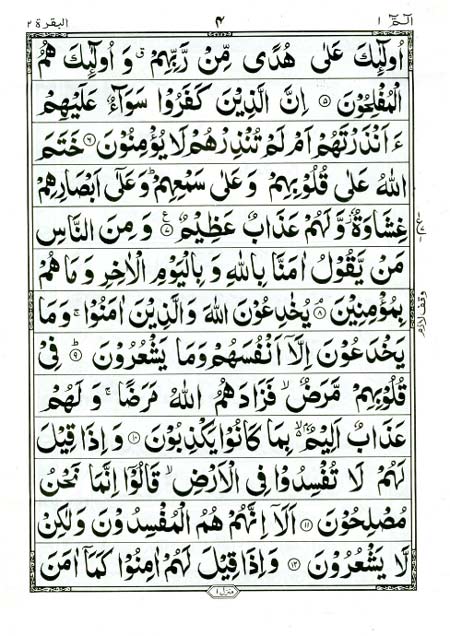 الٓمّٓ ١ ٤ البقرة ٢
اُولٰٓئِكَ عَلٰى هُدًى مِّنْ رَّبِّهِمْ ق وَ اُولٰٓئِكَ هُمُ
الْمُفْلِحُوْنَ ۝٥ اِنَّ الَّذِيْنَ كَفَرُوْا سَوَآءٌ عَلَيْهِمْ
ءَ اَنْذَرْتَهُمْ اَمْ لَمْ تُنْذِرْهُمْ لَا يُؤْمِنُوْنَ ۝٦ خَتَمَ
اللّٰهُ عَلٰى قُلُوْبِهِمْ وَ عَلٰى سَمْعِهِمْ ؕ وَ عَلٰٓى اَبْصَارِهِمْ
غِشَاوَةٌ ز وَّ لَهُمْ عَذَابٌ عَظِيْمٌ ۝٧ ع وَ مِنَ النَّاسِ
مَنْ يَّقُوْلُ اٰمَنَّا بِاللّٰهِ وَ بِالْيَوْمِ الْاٰخِرِ وَ مَا هُمْ
بِمُؤْمِنِيْنَ ۝٨ م يُخٰدِعُوْنَ اللّٰهَ وَ الَّذِيْنَ اٰمَنُوْا ۚ وَ مَا
يَخْدَعُوْنَ اِلَّآ اَنْفُسَهُمْ وَ مَا يَشْعُرُوْنَ ۝٩ ؕ فِيْ
قُلُوْبِهِمْ مَّرَضٌ ۙ فَزَادَهُمُ اللّٰهُ مَرَضًا ۚ وَ لَهُمْ
عَذَابٌ اَلِيْمٌۢ ۙ بِمَا كَانُوْا يَكْذِبُوْنَ ۝١٠ وَ اِذَا قِيْلَ
لَهُمْ لَا تُفْسِدُوْا فِى الْاَرْضِ ۙ قَالُوْٓا اِنَّمَا نَحْنُ
مُصْلِحُوْنَ ۝١١ اَلَآ اِنَّهُمْ هُمُ الْمُفْسِدُوْنَ وَ لٰكِنْ
لَّا يَشْعُرُوْنَ ۝١٢ وَ اِذَا قِيْلَ لَهُمْ اٰمِنُوْا كَمَآ اٰمَنَ
منزل ١
وقف لازم